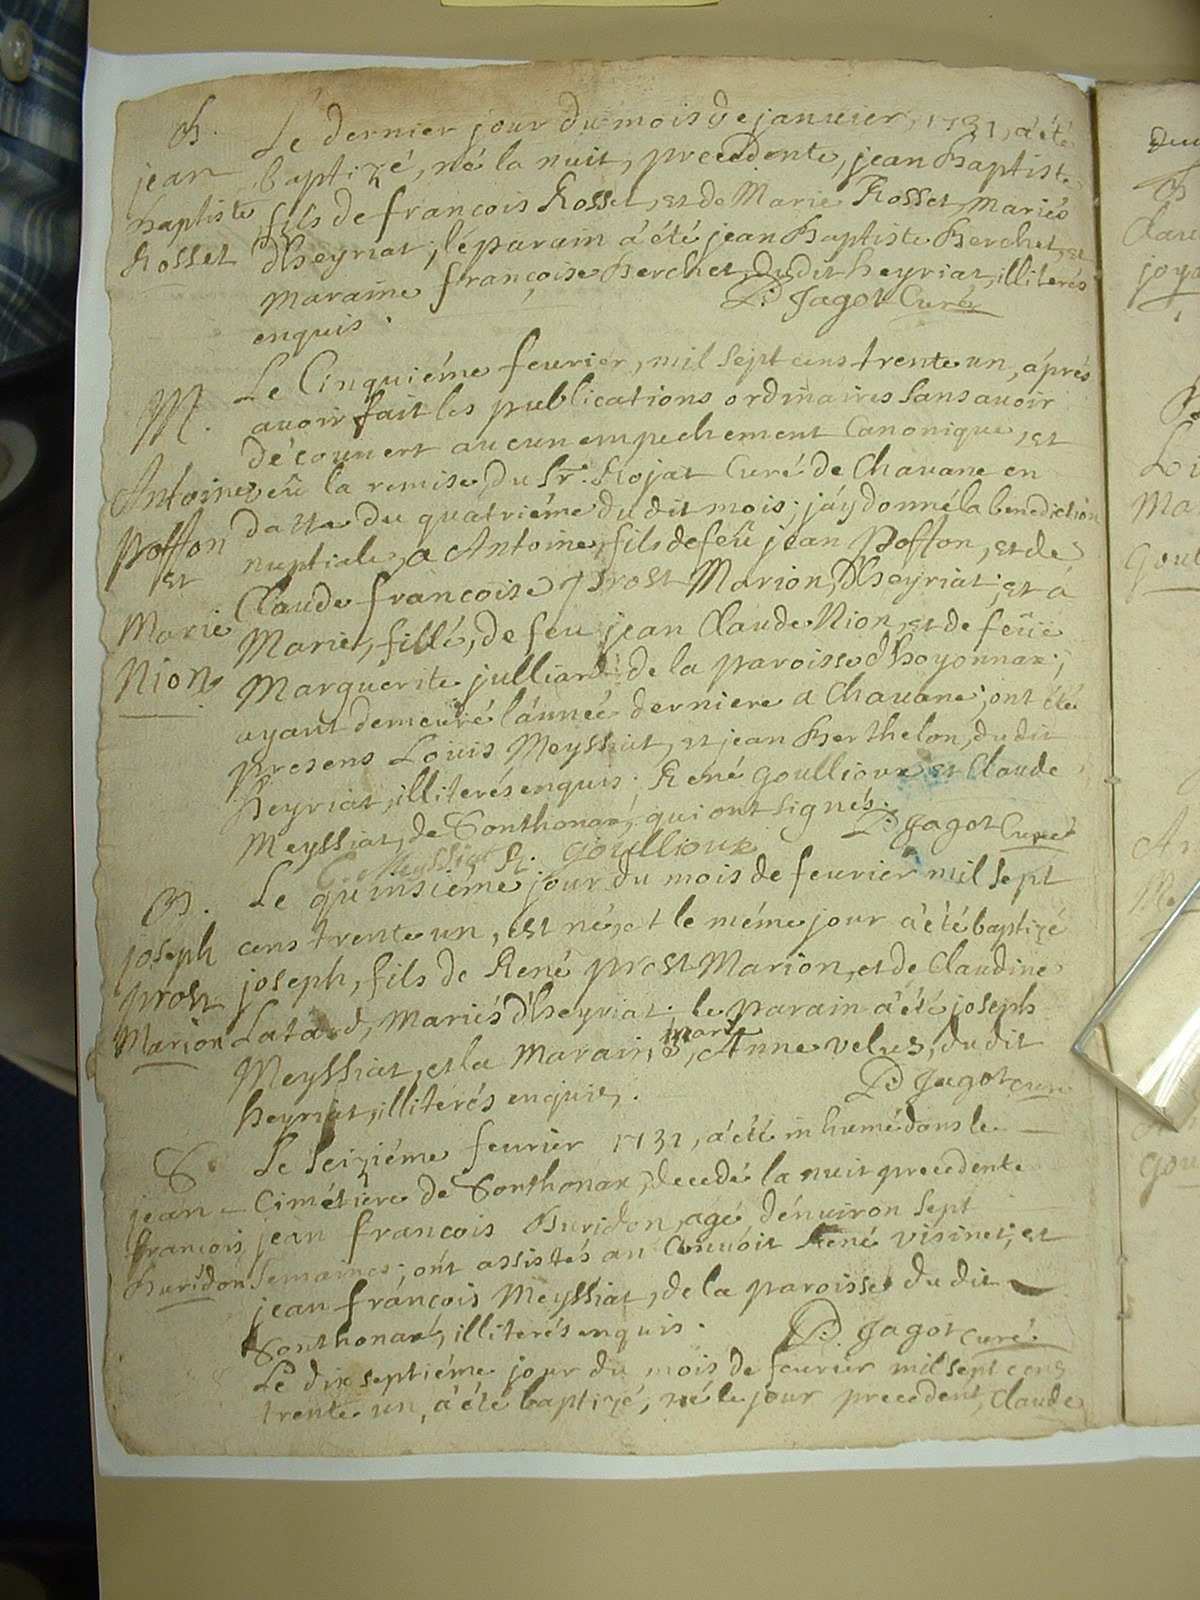 B.
jean
Baptiste
Rosset
Le dernier jour du mois de januier, 1731, a été
baptizé, né la nuit, precedente, jean Baptiste
fils de françois Rosset, et de Marie Rosset, mariés
dheyriat; le parain a été jean Baptiste Berchet, et
maraine françoise Berchet, dudit heyriat, illiterés
enquis.
D: Jagot Curé
M.
Antoine
Poffon
et
Marie
Nion
Le Cinquiéme feurier, mil sept cens trente un, áprés
auoir fait les publications ordinaires sans auoir
découuert aucun empechement Canonique, et
veû la remise du Sr. Rojat Curé de Chauane en
datte du quatriéme du dit mois; j'áy donné la benediction
nuptiale, a Antoine, fils de feû jean Poffon, et de
Claude françoise prost Marion, dheyriat; et á
Marie, fille, de feu jean Claude Nion, et de feüe
Marguerite julliard de la paroisse dhoyonnax;
ayant demeuré lánnée derniere a Chauane; ont été
presens Louis Meyssiat, et jean Berthelon, du dit
heyriat, illiterés enquis; René goullioux et Claude
Meyssiat, de Sonthonax, qui ont signés.
D: Jagot Curé
C. Meyssiat R. goullioux
B.
joseph
prost
Marion
Le quinsiéme jour du mois de feurier mil sept
cens trente un, est né, et le méme jour a été baptizé
joseph, fils de René prost Marion, et de Claudine
Latard, Mariés dheyriat; le parain a été joseph
Meyssiat, et la Marain, Anne velus, du dit
heyriat, illiterés enquis.
D: Jagot curé
S.
jean
francois
Buridon
Le seiziéme feurier 1731, a été inhumé dans le
Cimétiere de Sonthonax, decedé la nuit precedente
jean francois Buridon, agé, dénuiron sept
semaines; ont assistés au Conuoit René visinet; et
jean françois Meyssiat, de la paroisse du dit
Sonthonax, illiterés enquis.
D: Jagot curé.
Le dix septiéme jour du mois de feurier mil sept cens
trente un, a été baptizé, né le jour precedent, Claude